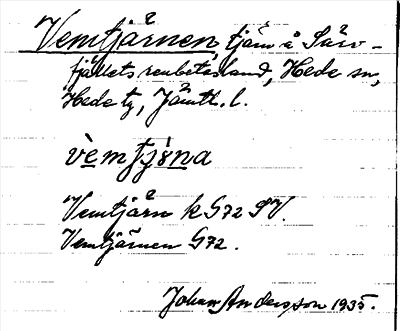 Vemtjärnen, tjärn å Särv-
fjällets renbetesland, Hede sn,
Hede tg, Jämtl. l.
vemtjɵ̀na
Vemtjärn k G72 SV.
Vemtjärnen G72.
Johan Andersson 1935.